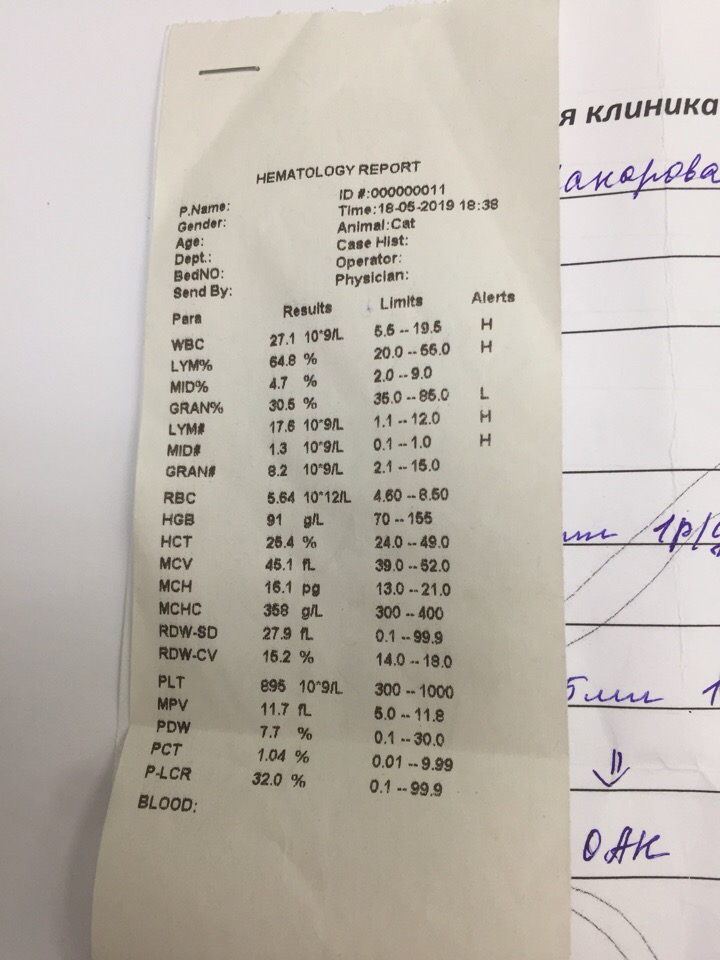 HEMATOLOGY REPORT
ID #:000000011
P.Name: Time:18-05-2019 18:38
Gender: Animal:Cat
Age: Case Hist:
Dept.: Operator:
BedNO: Physician:
Send By:
Para Results Limits Alerts
WBC 27.1 10^9/L 5.5 -- 19.5 H
LYM% 64.8 % 20.0 -- 55.0 H
MID% 4.7 % 2.0 -- 9.0
GRAN% 30.5 % 35.0 -- 85.0 L
LYM# 17.6 10^9/L 1.1 -- 12.0 H
MID# 1.3 10^9/L 0.1 -- 1.0 H
GRAN# 8.2 10^9/L 2.1 -- 15.0
RBC 5.64 10^12/L 4.60 -- 8.50
HGB 91 g/L 70 -- 155
HCT 25.4 % 24.0 -- 49.0
MCV 45.1 fL 39.0 -- 52.0
MCH 16.1 pg 13.0 -- 21.0
MCHC 358 g/L 300 -- 400
RDW-SD 27.9 fL 0.1 -- 99.9
RDW-CV 15.2 % 14.0 -- 18.0
PLT 895 10^9/L 300 -- 1000
MPV 11.7 fL 5.0 -- 11.8
PDW 7.7 % 0.1 -- 30.0
PCT 1.04 % 0.01 -- 9.99
P-LCR 32.0 % 0.1 -- 99.9
BLOOD:
я клиника
1р/
5мл 1
ОАК